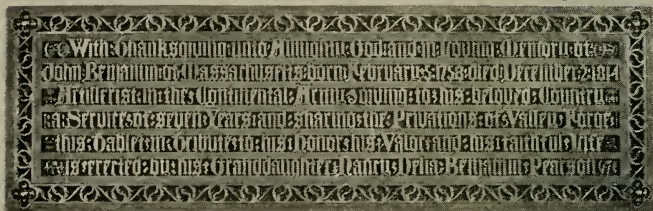 With·Thanksgiving·unto·Almighty·God·and·in·loving·Memory·of
John·Benjamin·of·Massachusetts·born·February·5·1758·died·December·2·1814
Artillerist·in·the·Continental·Army·Giving·to·his·beloved·Country
a·Service·of·seven·Years·and·sharing·the·Privations·of·Valley·Forge
this·Tablet·in·Tribute·to·his·Honor·his·Valor·and·his·faithful·Life
is·erected·by·his·Granddaughter·Nancy·Delia·Benjamin·Pearson